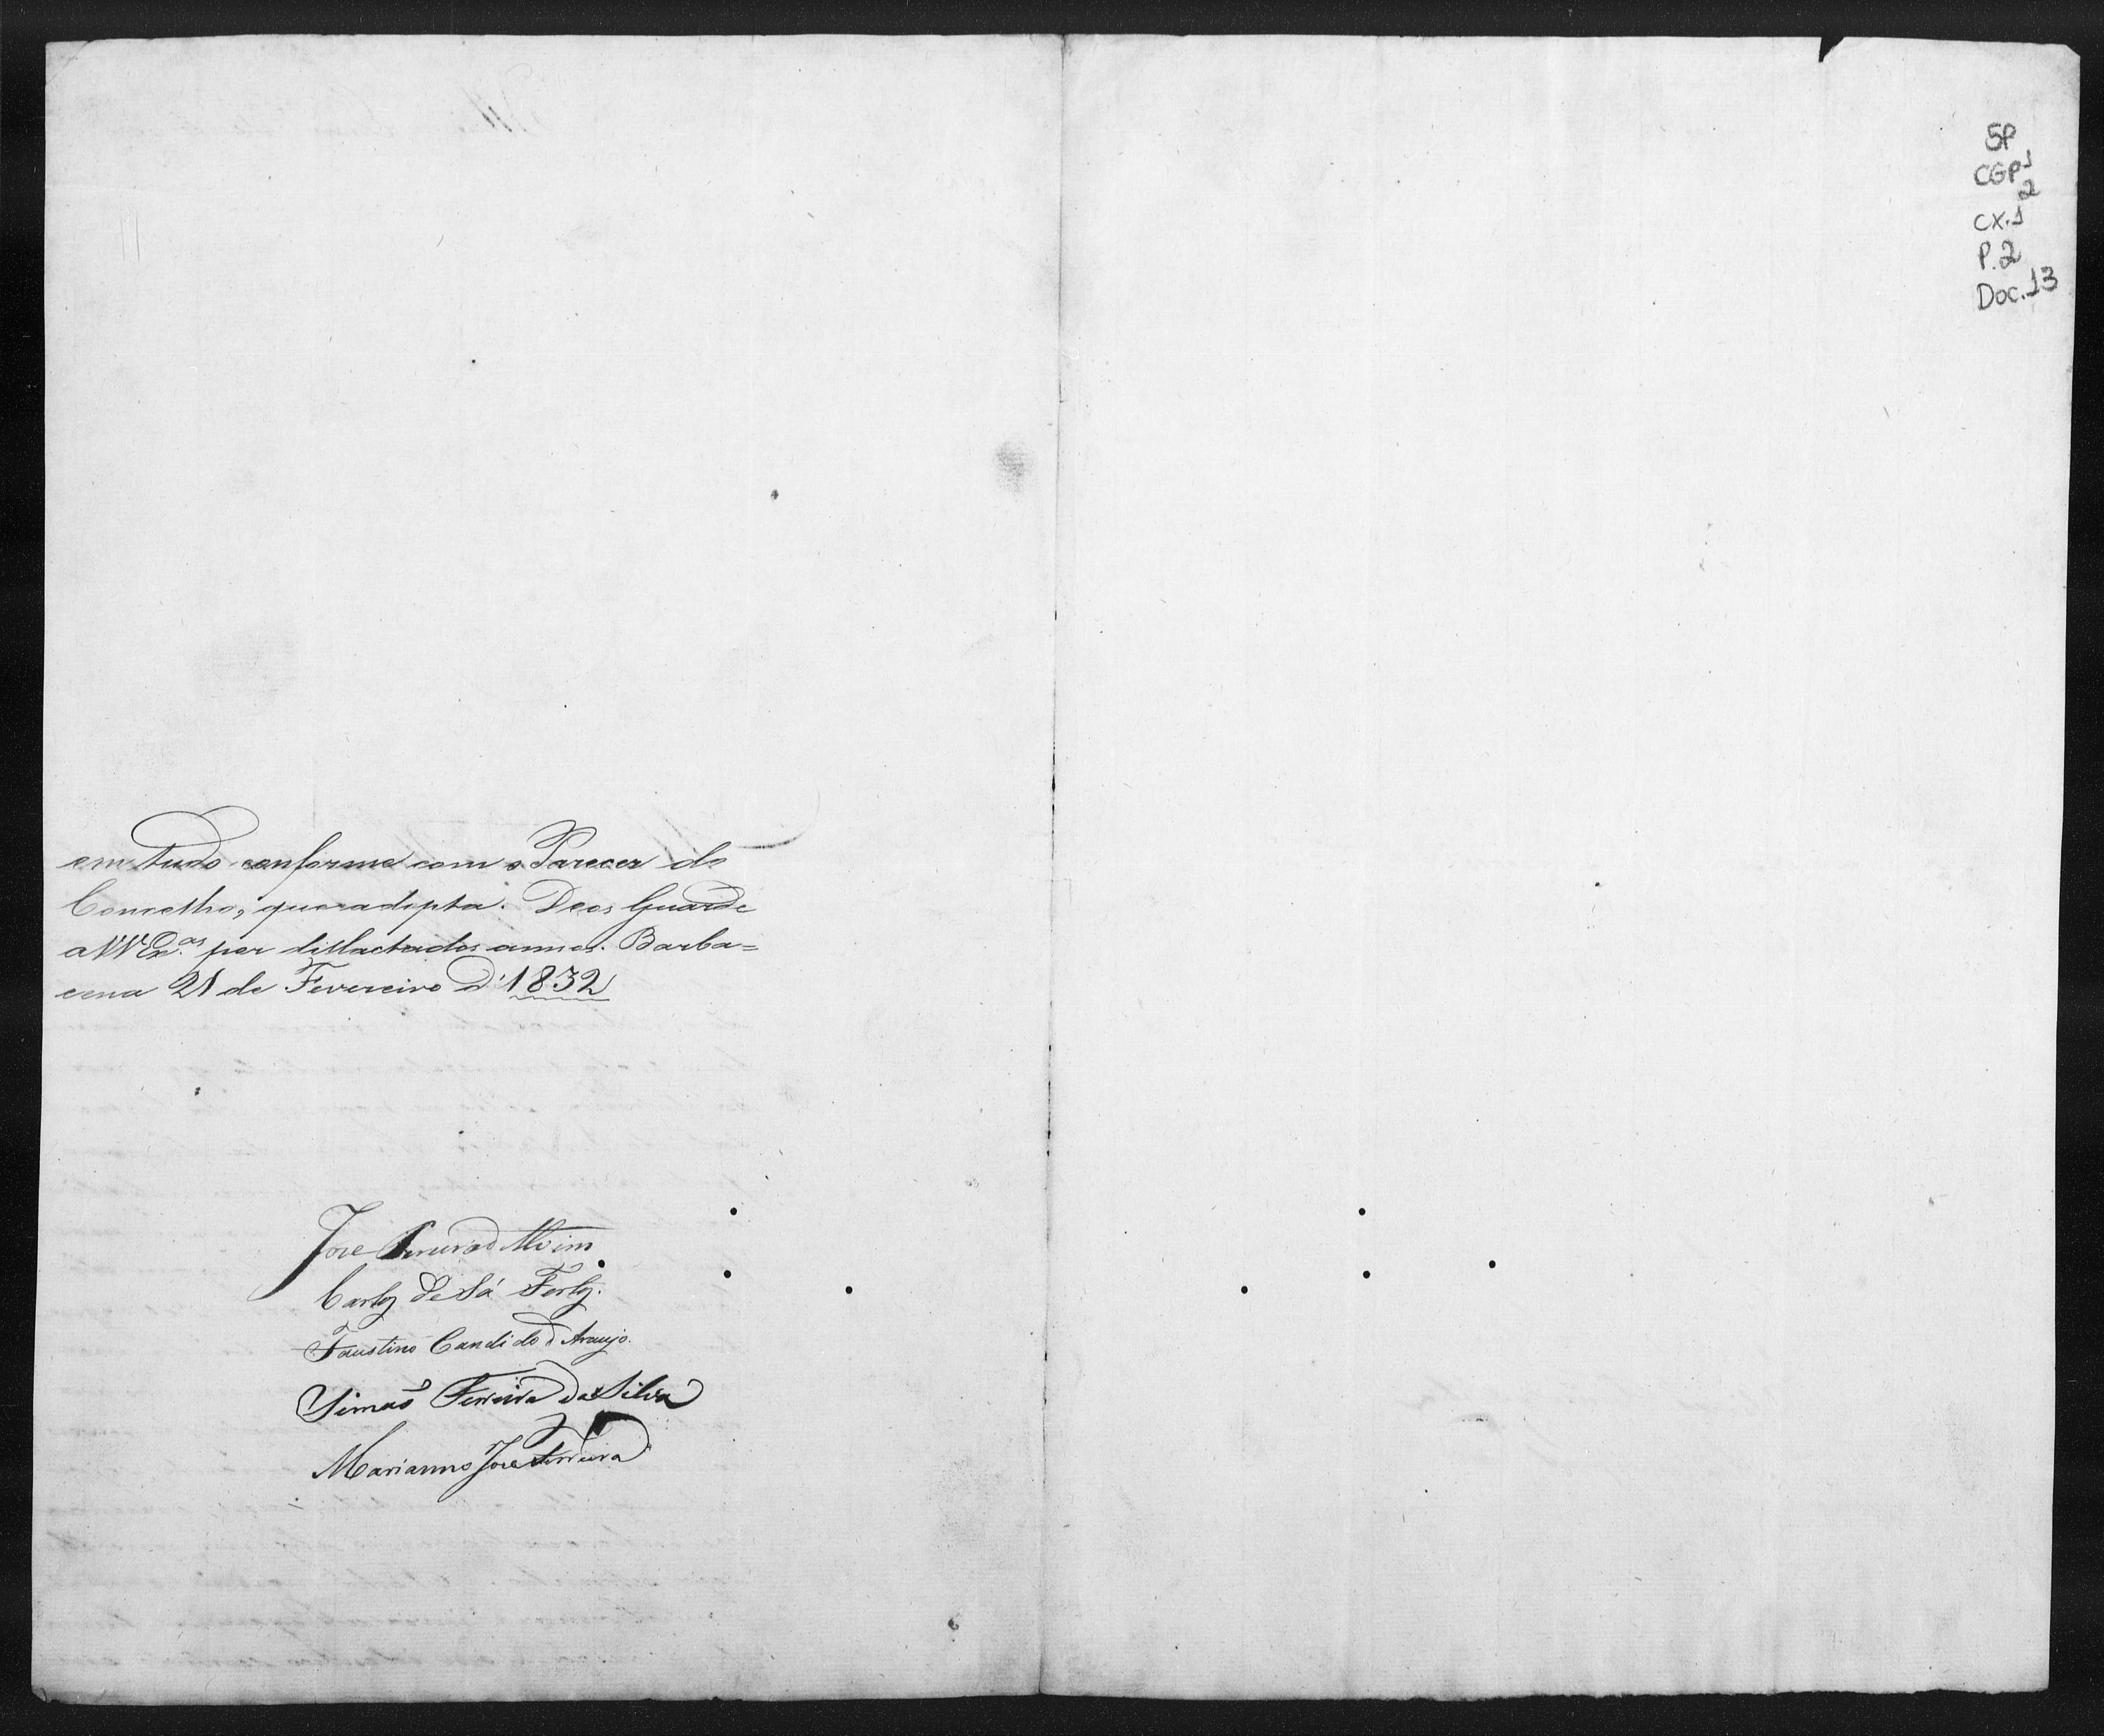 em tudo conforme com o Parecer do
Concelho, que
adopta. Deos Guarde
a VV. Ex.as por dillactados annos. Barba=
cena 21 de Fevereiro d'1832
Jose
Alvim
Carlos de Sá Fortes.
Faustino Candido d'Araujo.
Simaõ Ferreira da Silva
Marianno Jose Ferreira
SP
CGP1
2
CX.1
P.2
Doc.13